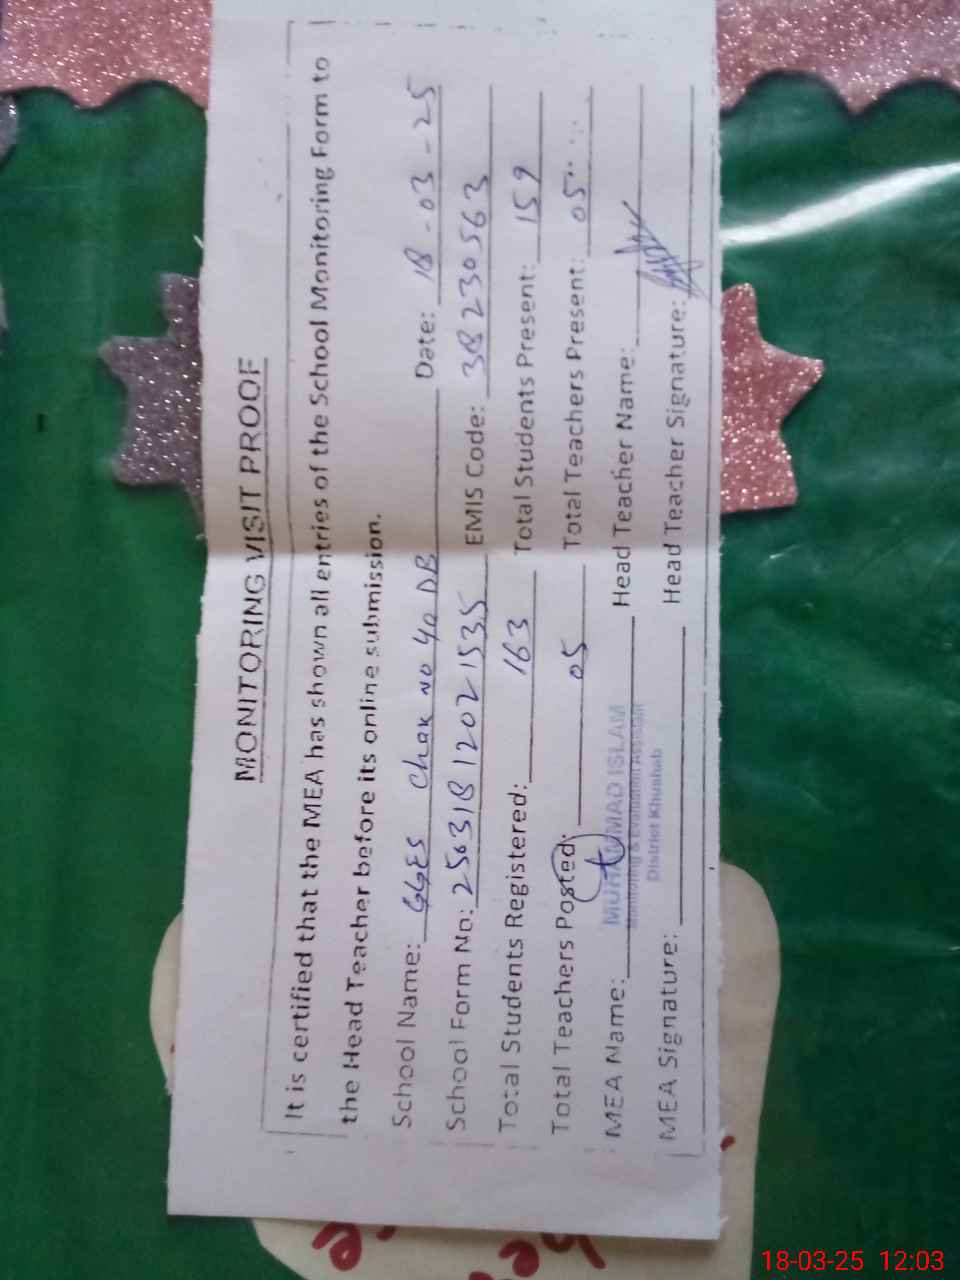 MONITORING VISIT PROOF
It is certified that the MEA has shown all entries of the School Monitoring Form to
the Head Teacher before its online submission.
School Name: GGES Chak No 40 DB Date: 18-03-25
School Form No: 25031812021535 EMIS Code: 38230563
Total Students Registered: 163 Total Students Present: 159
Total Teachers Posted: 05 Total Teachers Present: 05
MEA Name: MUHAMMAD ISLAM Head Teacher Name:
Monitoring & Evaluation Assistant
District Khushab
MEA Signature: Head Teacher Signature:
18-03-25 12:03